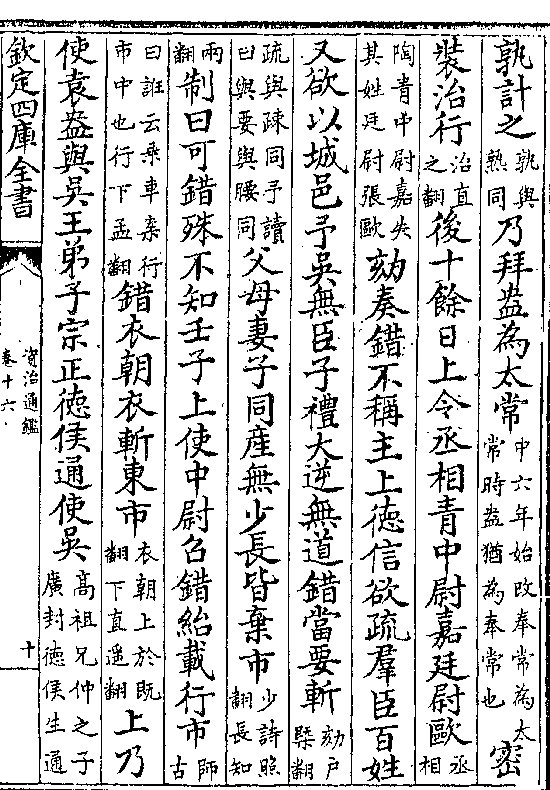 孰計之孰與熟同乃拜盎為太常中六年始改奉常為太常時盎猶為奉常也密
裝治行治直之翻後十餘日上令丞相青中尉嘉廷尉歐丞相
陶青中尉嘉失其姓廷尉張歐劾奏錯不稱主上徳信欲疏羣臣百姓
又欲以城邑予吳無臣子禮大逆無道錯當要斬劾户槩翻
疏與疎同予讀曰與要與腰同父母妻子同産無少長皆棄市少詩照翻長知
兩翻制曰可錯殊不知壬子上使中尉召錯紿載行市師古
曰誑云乗車案行市中也行下孟翻錯衣朝衣斬東市衣朝上於既翻下直遥翻上乃
使袁盎與吳王弟子宗正徳侯通使吳髙祖兄仲之子廣封徳侯生通
欽定四庫全書
資治通鑑
卷十六
十